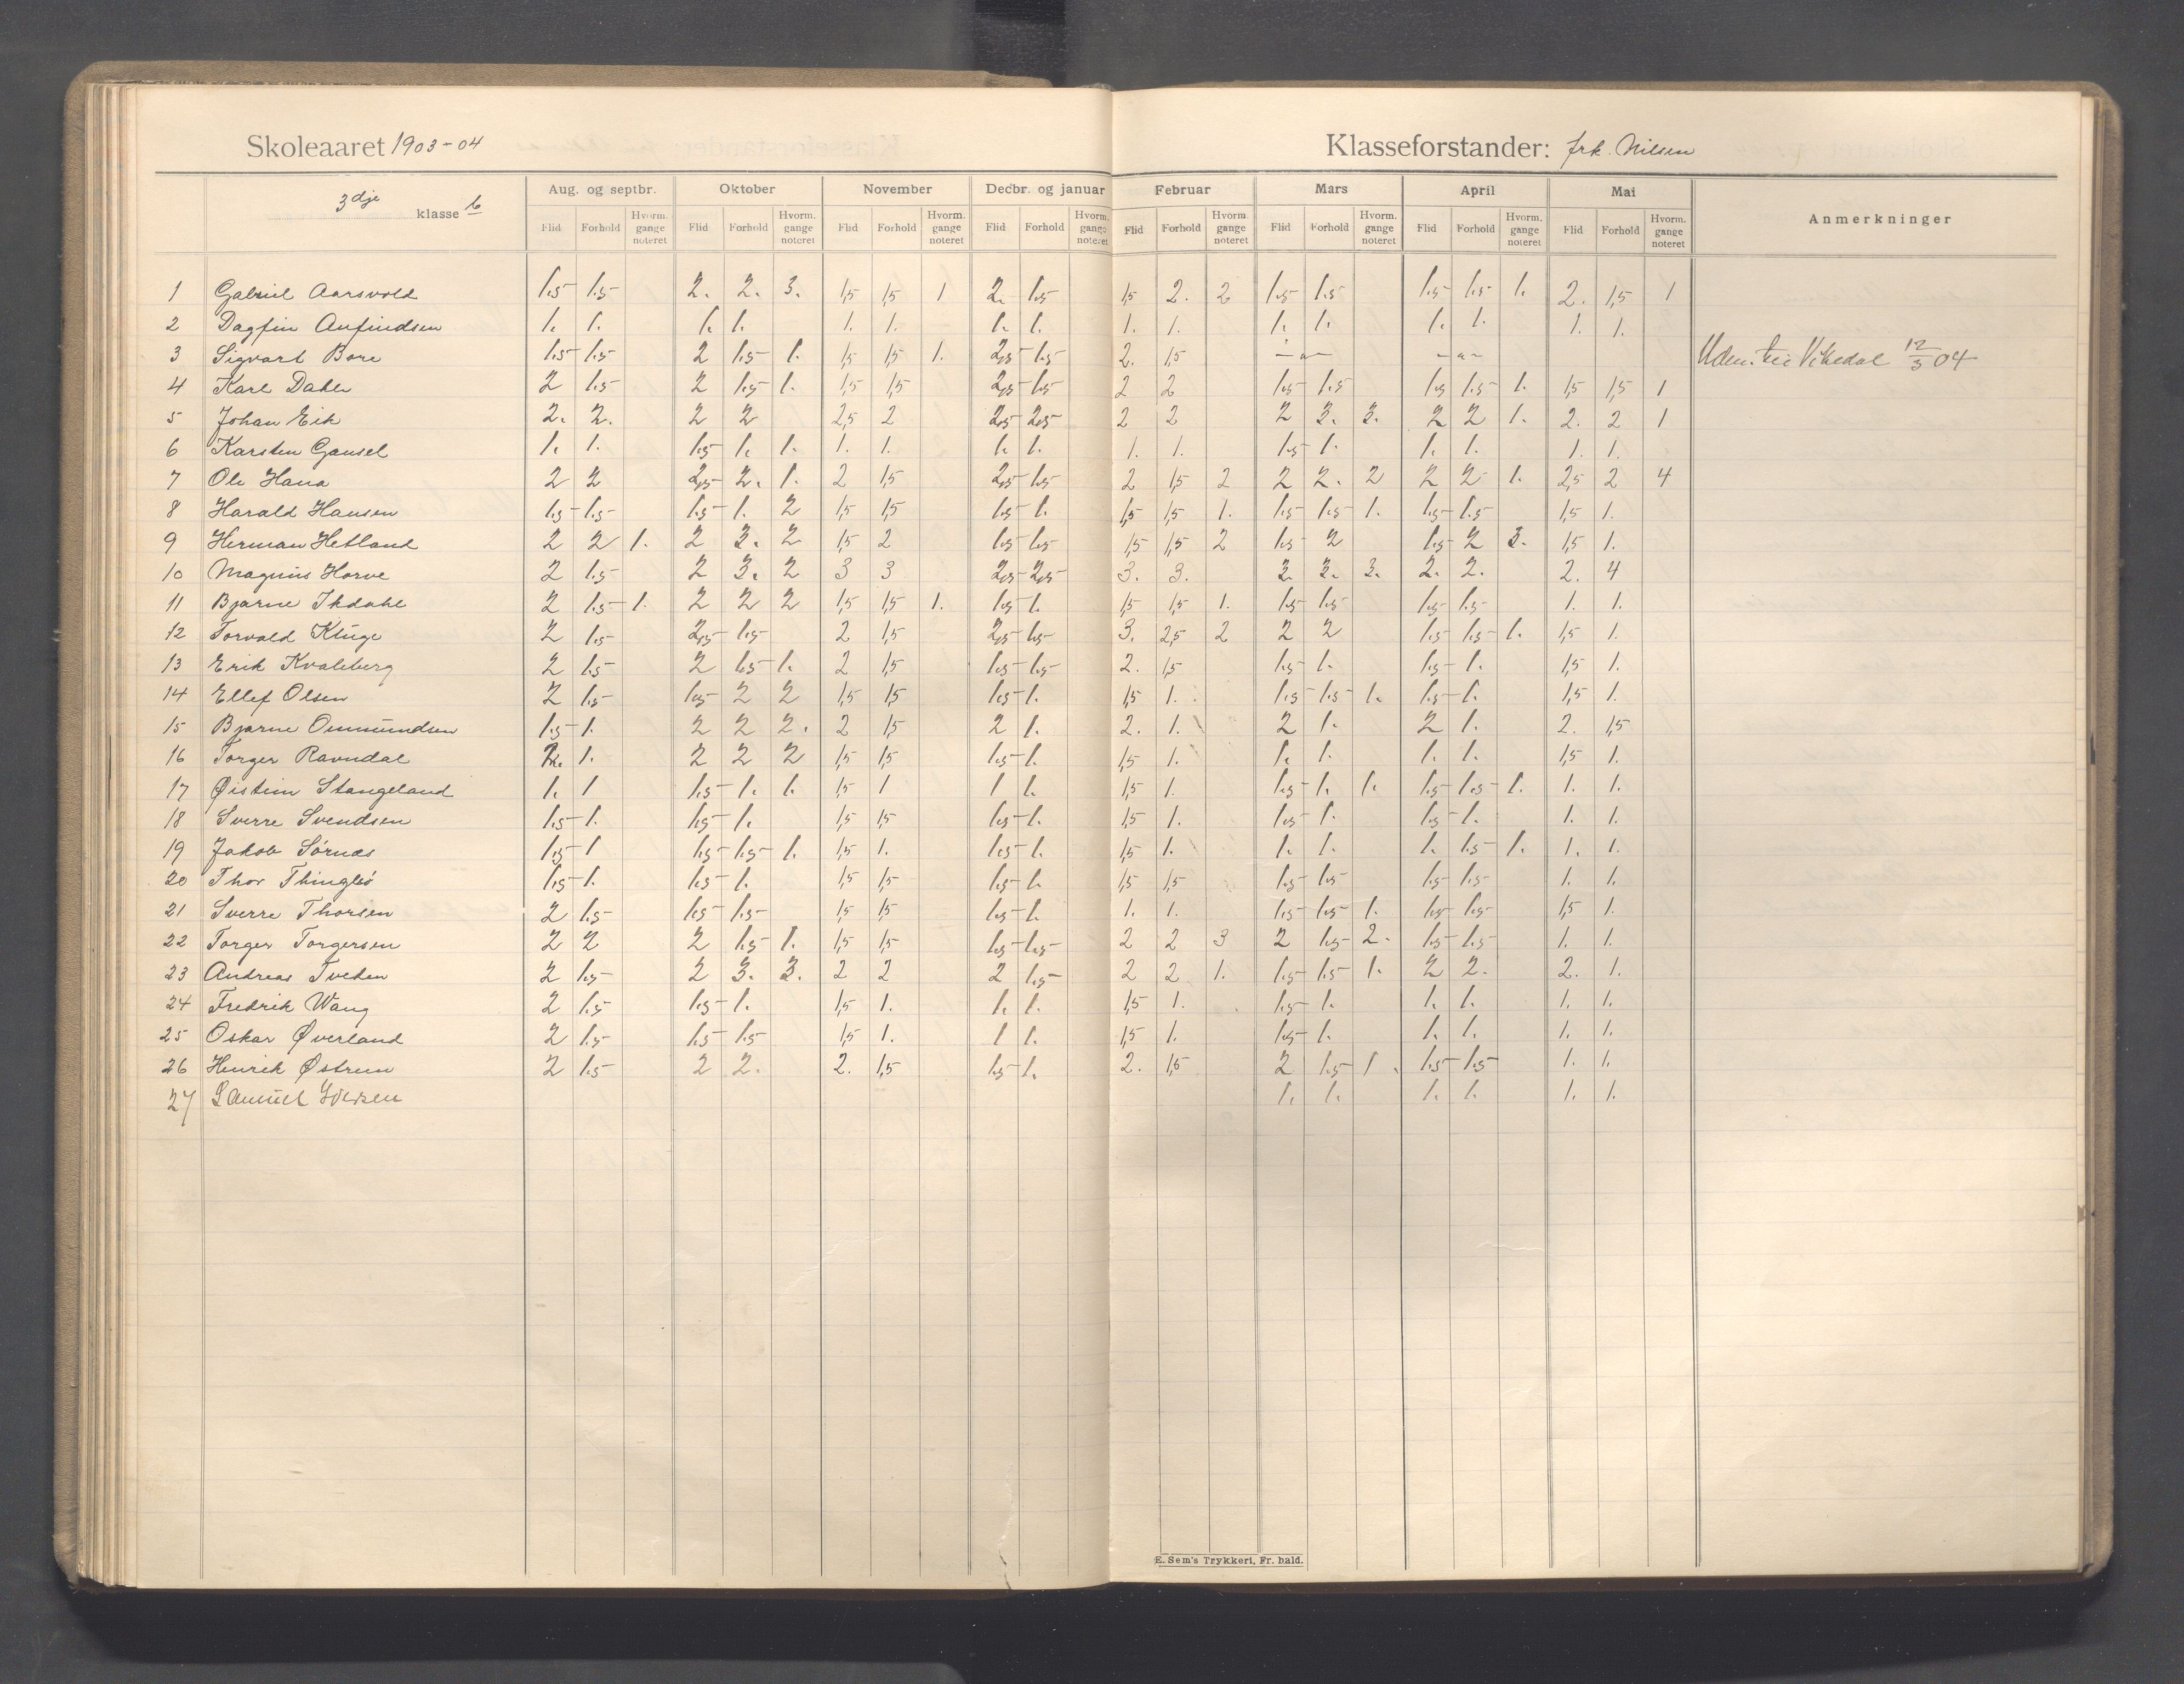 Skoleaaret 1903-04 Klasseforstander: frk. Nilsen
3dje klasse b
Aug. og septbr. Oktober November Decbr. og januar Februar Mars April Mai Anmerkninger
Flid Forhold Hvorm. gange noteret Flid Forhold Hvorm. gange noteret Flid Forhold Hvorm. gange noteret Flid Forhold Hvorm. gange noteret Flid Forhold Hvorm. gange noteret Flid Forhold Hvorm. gange noteret Flid Forhold Hvorm. gange noteret Flid Forhold Hvorm. gange noteret
1 Gabriel Aarsvold 1.5 1.5 2. 2. 3. 1,5 1,5 1 2. 1.5 1,5 2. 2 1.5 1.5 1.5 1.5 1. 2. 1,5 1
2 Dagfin Anfindsen 1. 1. 1. 1. 1. 1. 1. 1. 1. 1. 1. 1. 1. 1. 1. 1.
3 Sigvart Bore 1.5 1.5 2 1.5 1. 1,5 1,5 1. 2,5 1.5 2. 1,5 -"- -"- 12/3 04
4 Karl Dahle 2 1.5 2 1.5 1. 1,5 1,5 2,5 1.5 2 2 1.5 1.5 1.5 1.5 1. 1,5 1,5 1
5 Johan Eik 2. 2. 2 2 2,5 2 2,5 2,5 2 2 2 3. 3. 2 2 1. 2. 2 1
6 Karsten Gausel 1. 1. 1.5 1. 1. 1. 1. 1. 1. 1. 1. 1.5 1. 1. 1. 1. 1.
7 Ole Hana 2 2 2,5 2. 1. 2 1,5 2,5 1.5 2 1,5 2 2 2. 2 2 2 1. 2,5 2 4
8 Harald Hansen 1.5 1.5 1.5 1. 2 1,5 1,5 1.5 1. 1,5 1,5 1. 1.5 1.5 1. 1.5 1.5 1,5 1.
9 Herman Hetland 2 2 1. 2 3. 2 1,5 2 1.5 1.5 1,5 1,5 2 1.5 2 1.5 2 3. 1,5 1.
10 Magnus Horve 2 1.5 2 3. 2 3 3 2,5 2,5 3. 3. 3. 3. 3. 2. 2. 2. 4
11 Bjarne Ikdahl 2 1.5 1. 2 2 2 1,5 1,5 1. 1.5 1. 1,5 1,5 1. 1.5 1.5 1.5 1.5 1. 1.
12 Torvald Kluge 2 1.5 2,5 1.5 2 1,5 2,5 1.5 3. 2,5 2 2 2 1.5 1.5 1. 1,5 1.
13 Erik Kvaleberg 2 1.5 2 1.5 1. 2 1,5 1.5 1.5 2. 1,5 1.5 1. 1.5 1. 1,5 1.
14 Ellef Olsen 2 1.5 1.5 2 2 1,5 1,5 1.5 1. 1,5 1. 1.5 1.5 1. 1.5 1. 1,5 1.
15 Bjarne Ommundsen 1.5 1. 2 2 2. 2 1,5 2 1. 2. 1. 2 1. 2 1. 2. 1,5
16 Torger Ravndal 1. 2 2 2 1,5 1,5 1.5 1. 1,5 1. 1. 1. 1. 1. 1,5 1.
17 Øistein Stangeland 1. 1 1.5 1. 1. 1,5 1 1 1. 1,5 1. 1.5 1. 1. 1.5 1.5 1. 1. 1.
18 Sverre Svendsen 1.5 1. 1.5 1. 1,5 1,5 1.5 1. 1,5 1. 1.5 1. 1.5 1. 1. 1.
19 Jakob Sørnæs 1.5 1 1.5 1.5 1. 1,5 1. 1.5 1. 1,5 1. 1. 1. 1. 1.5 1. 1. 1.
20 Thor Thingbø 1.5 1. 1.5 1. 1,5 1,5 1.5 1. 1,5 1,5 1.5 1.5 1.5 1.5 1. 1.
21 Sverre Thorsen 2 1.5 1.5 1.5 1,5 1,5 1.5 1. 1. 1. 1.5 1.5 1. 1.5 1.5 1,5 1.
22 Torger Torgersen 2 2 2 1.5 1. 1,5 1,5 1.5 1.5 2 2 3 2 1.5 2. 1.5 1.5 1. 1.
23 Andreas Tveden 2 1.5 2 3. 3. 2 2 2 1.5 2 2 1. 1.5 1.5 1. 2 2. 2. 1.
24 Fredrik Wang 2 1.5 1.5 1. 1,5 1. 1. 1. 1,5 1. 1.5 1. 1. 1. 1. 1.
25 Oskar Øverland 2 1.5 1.5 1.5 1,5 1. 1 1. 1,5 1. 1.5 1. 1. 1. 1. 1.
26 Henrik Østrem 2 1.5 2 2. 2. 1,5 1.5 1. 2. 1,5 2 1.5 1. 1.5 1.5 1. 1.
27 Samuel Iversen 1. 1. 1. 1. 1. 1.
E. Sem's Trykkeri, Fr. hald.